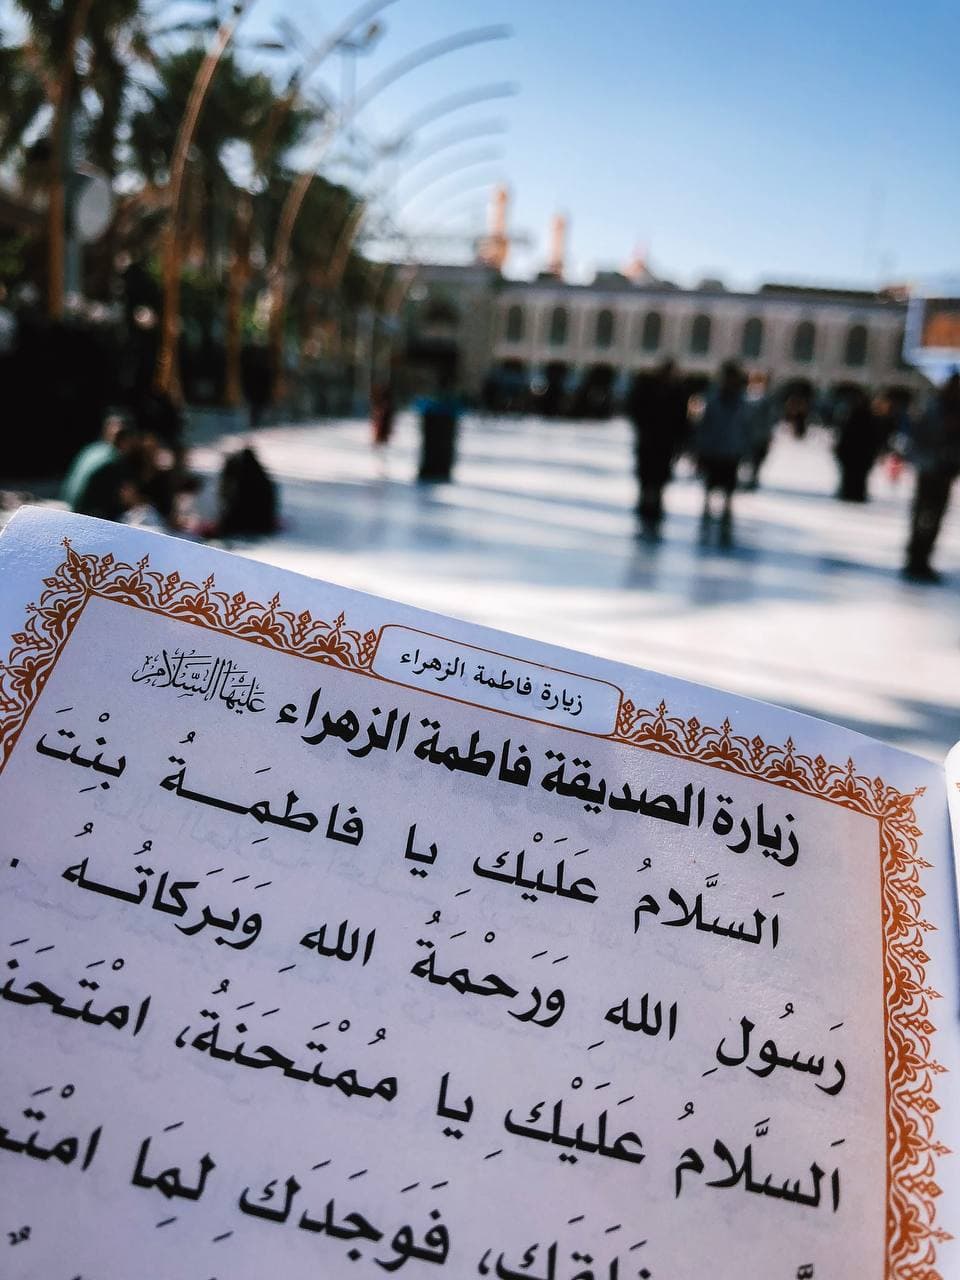 زيارة فاطمة الزهراء
زيارة الصديقة فاطمة الزهراء عليها السلام
اَلسَّلامُ عَلَيْكِ يا فاطِمَـةُ بِنْتَ
رَسُولِ اللهِ وَرَحْمَةُ اللهِ وَبَرَكاتُـهُ .
اَلسَّلامُ عَلَيْكِ يا مُمْتَحَنَةُ، امْتَحَنَ
فَوَجَدَكِ لِمَا